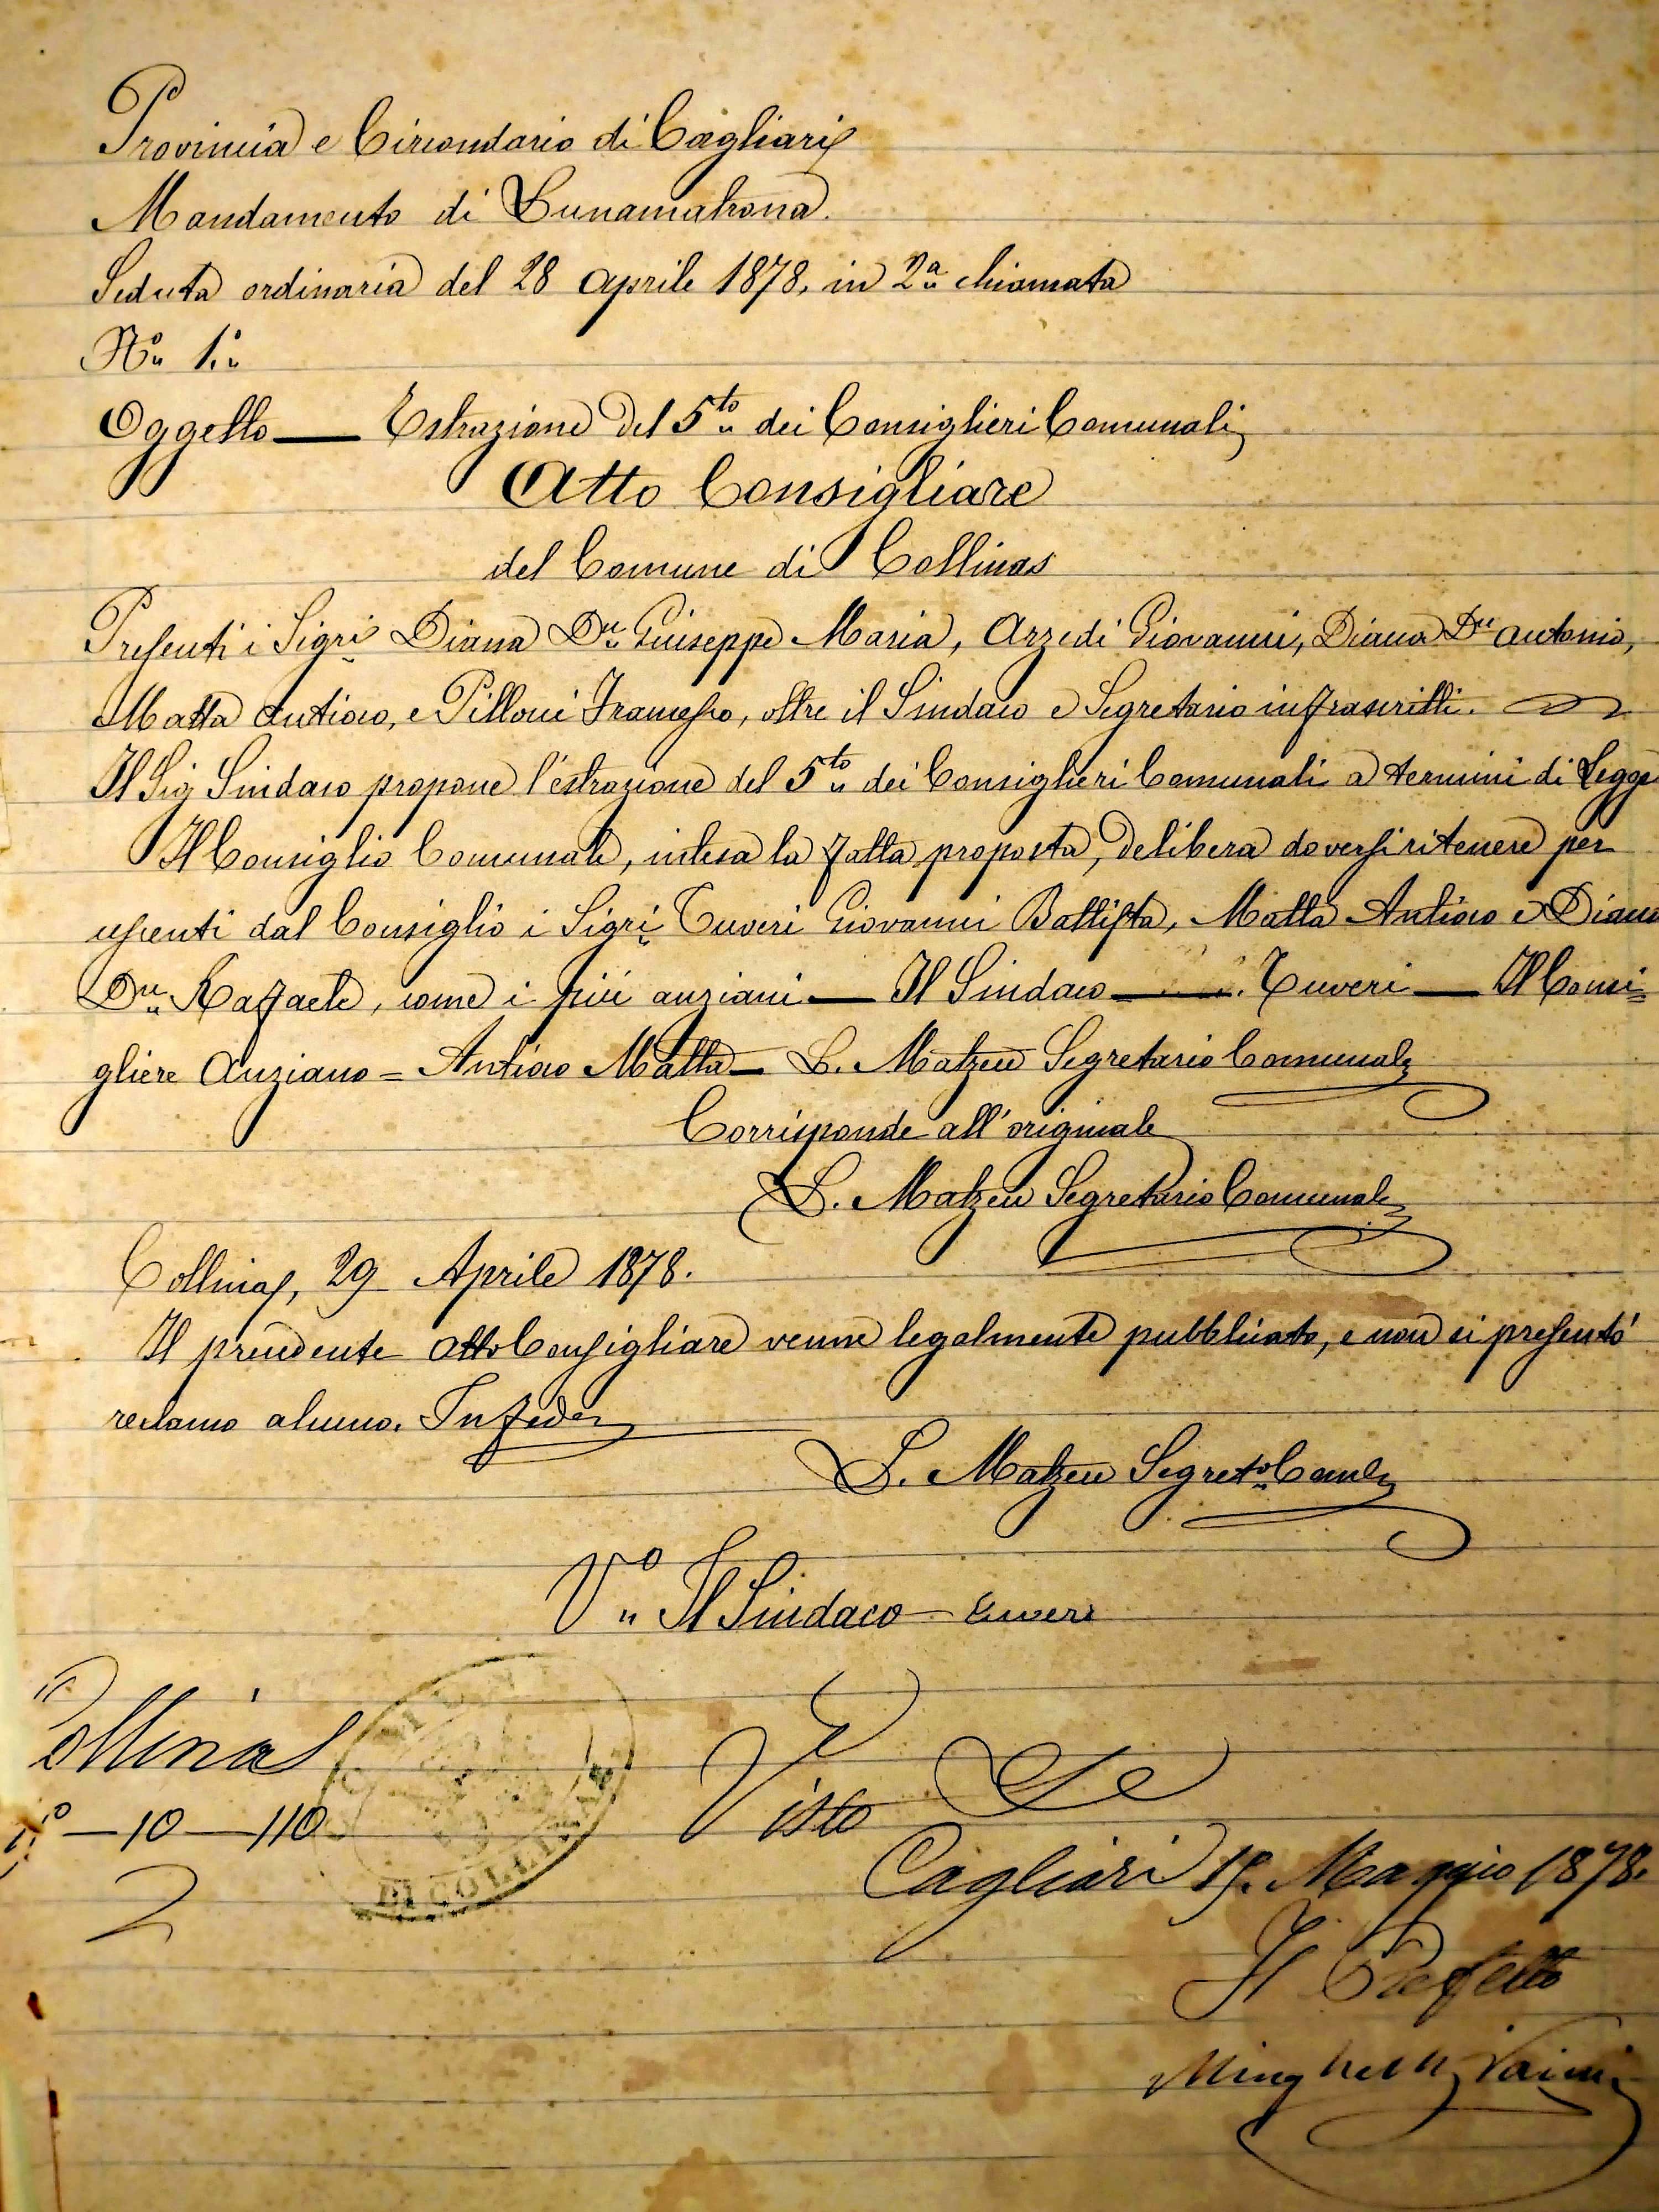 Provincia e Circondario di Cagliari
Mandamento di Lunamatrona.
Seduta ordinaria del 28 Aprile 1878, in 2ª chiamata
Nº 1º
Oggetto — Estrazione del 5to dei Consiglieri Comunali
Atto Consigliare
del Comune di Collinas
Presenti i Sigri Diana Dn Giuseppe Maria, Arzedi Giovanni, Diana Dn Antonio,
Matta Antioco, e Pilloni Francesco, oltre il Sindaco e Segretario infrascritti.
Il Sig Sindaco propone l'estrazione del 5to dei Consiglieri Comunali a termini di Legge
Il Consiglio Comunale, intesa la fatta proposta, delibera doversi ritenere per
uscenti dal Consiglio i Sigri Tuveri Giovanni Battista, Matta Antioco e Diana
Dn Raffaele, come i più anziani — Il Sindaco — Tuveri — Il Consi=
gliere Anziano = Antioco Matta — L. Matzeu Segretario Comunale
Corrisponde all'originale
L. Matzeu Segretario Comunale
Collinas, 29 Aprile 1878.
Il precedente atto Consigliare venne legalmente pubblicato, e non si presentò
reclamo alcuno. In fede
L. Matzeu Segreto Comle
Vº Il Sindaco — Tuveri
COMUNE
DI COLLINAS
Collinas
nº — 10 — 110
2
Visto
Cagliari 15. Maggio 1878.
Il Prefetto
Minghelli Vaini